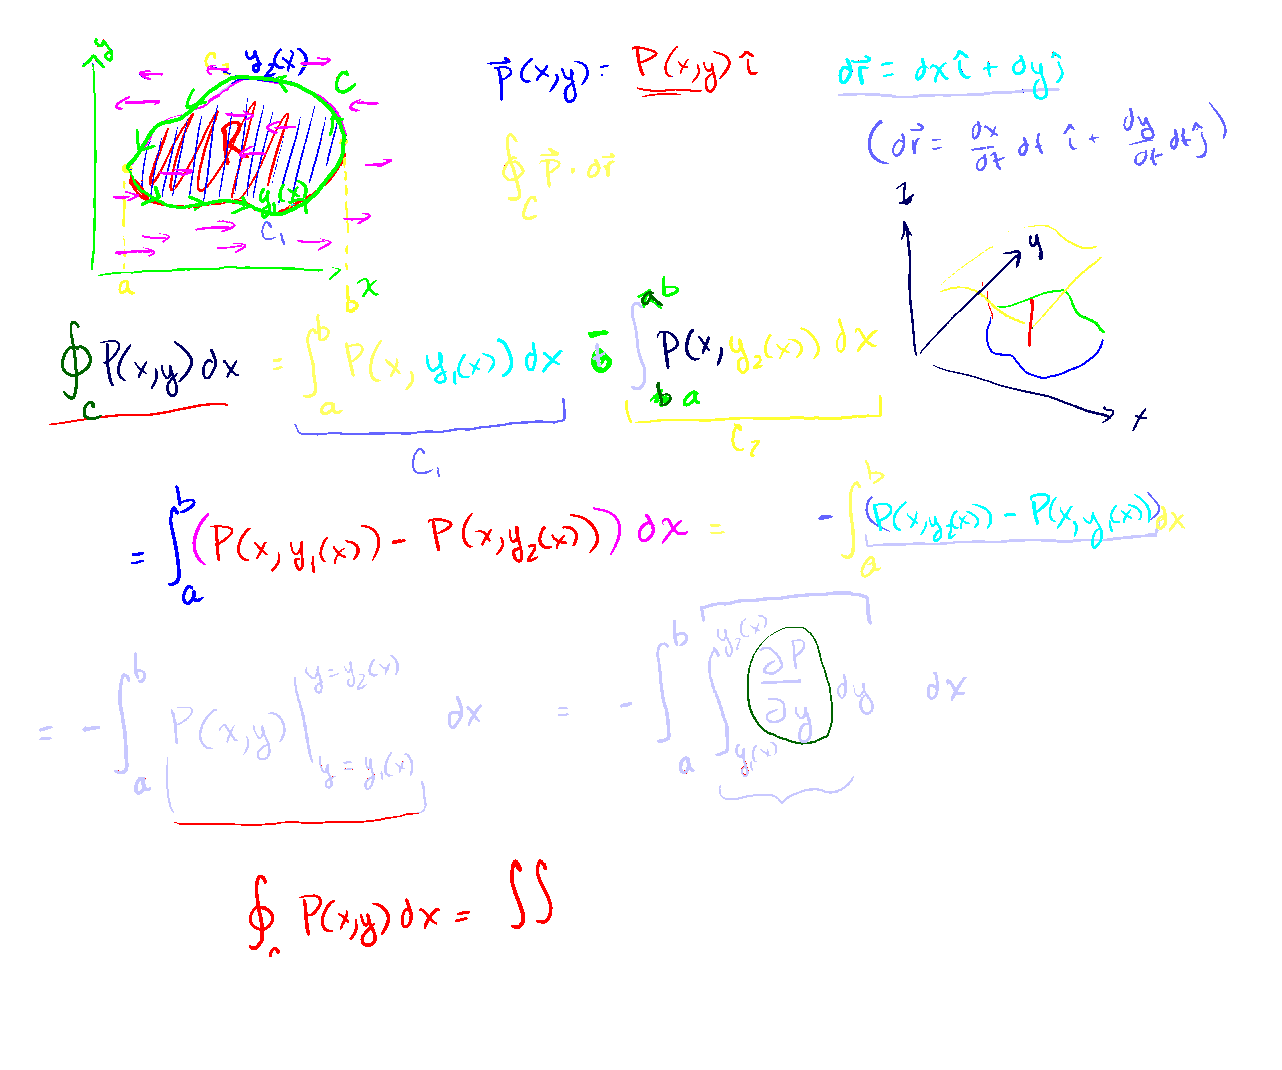 y y₂(x) C₂ C
R
y₁(x)
C₁
a b x
p⃗(x,y) = P(x,y) î
dr⃗ = dx î + dy ĵ
(dr⃗ = dx/dt dt î + dy/dt dt ĵ)
∮_C p⃗ · dr⃗
z y x
∮_C P(x,y) dx = ∫_a^b P(x, y₁(x)) dx - ∫_a^b P(x, y₂(x)) dx
C₁ C₂
= ∫_a^b (P(x, y₁(x)) - P(x, y₂(x))) dx = - ∫_a^b (P(x,y₂(x)) - P(x,y₁(x))) dx
= - ∫_a^b P(x,y) |_{y = y₁(x)}^{y = y₂(x)} dx = - ∫_a^b ∫_{y₁(x)}^{y₂(x)} ∂P/∂y dy dx
∮_c P(x,y) dx = ∫∫